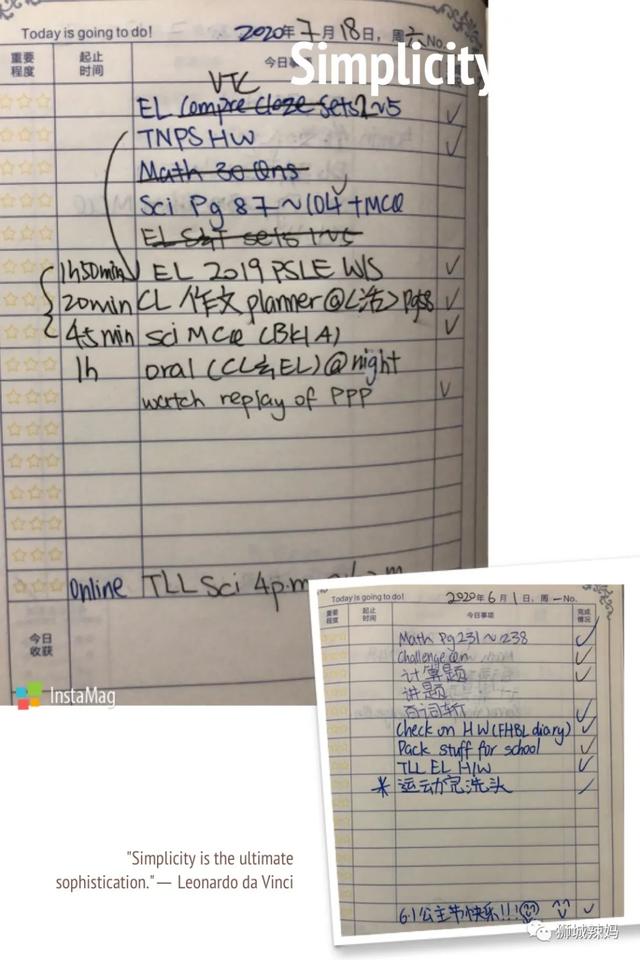 Today is going to do!
2020年7月18日，周六 No.
Simplicity
重要程度 起止时间 今日事项
VTC
EL Compre Cloze sets 1~5 ✓
TNPS HW ✓
Math 30 Qns
Sci Pg 87~104 + MCQ
EL S&T sets 1~5
1h50min EL 2019 PSLE W/S ✓
20min CL 作文 planner @<浩> pg58 ✓
45min sci MCQ (BK1A) ✓
1h oral (CL与EL) @ night
watch replay of PPP ✓
Online TLL Sci 4p.m
今日收获
InstaMag
Today is going to do!
2020年6月1日，周一 No.
重要程度 起止时间 今日事项 完成情况
Math Pg 231~238 ✓
Challenge ✓
计算题 ✓
讲题
百词斩 ✓
Check on HW (FHBL diary) ✓
Pack stuff for school ✓
TLL EL H/W ✓
* 运动完洗头
6.1公主节快乐!!! ✓
"Simplicity is the ultimate
sophistication." — Leonardo da Vinci
狮城辣妈